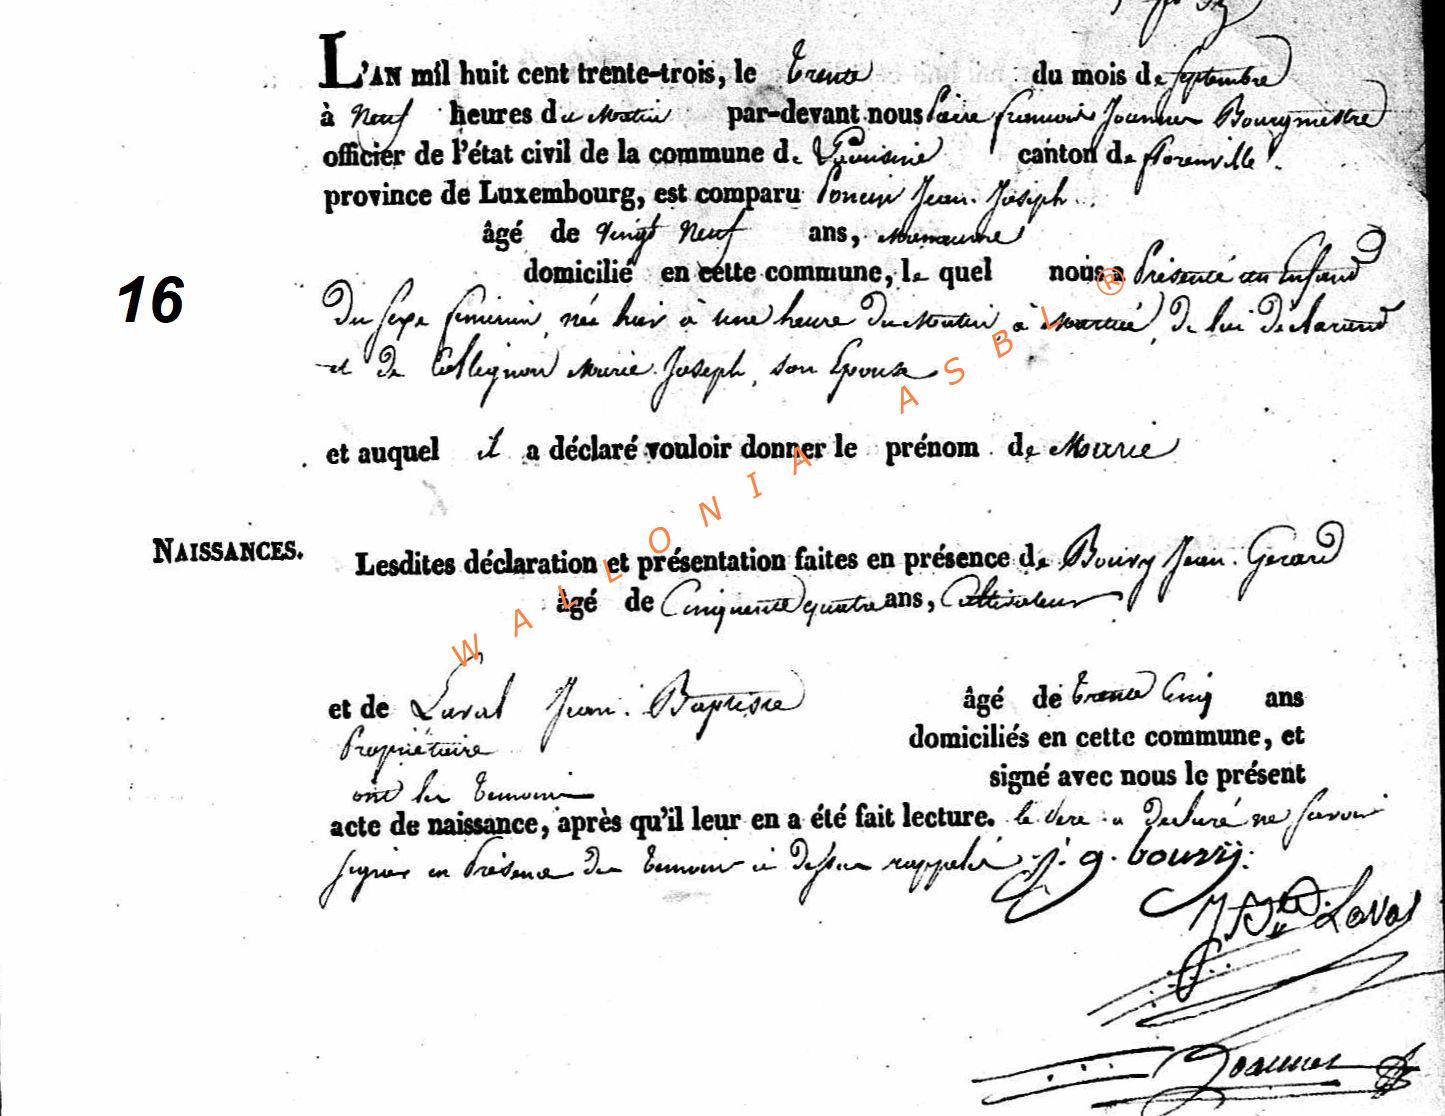 L'AN mil huit cent trente-trois, le trente du mois de septembre
à Neuf heures du Matin par-devant nous François Joannes Bourgmestre
officier de l'état civil de la commune de canton de florenville
province de Luxembourg, est comparu Poncin Jean. Joseph.
âgé de vingt Neuf ans,
domicilié en cette commune, le quel nous a Présenté un Enfand
16
Du sexe feminin, née hier à une heure du Matin à De lui Déclarand
et de Collignon Marie. Joseph, son Epouse
et auquel il a déclaré vouloir donner le prénom de Marie
NAISSANCES.
Lesdites déclaration et présentation faites en présence de Bouvy Jean. Gerard
âgé de Cinquente quatre ans, Cultivateur
et de Laval Jean. Baptiste âgé de trente Cinq ans
Propriétaire domiciliés en cette commune, et
ont les temoin signé avec nous le présent
acte de naissance, après qu'il leur en a été fait lecture. le Pere a Declaré ne savoir
signer en Présence des temoin ci dessus rappelés j. g. bouvy.
J Bte Laval
Joannes
WALLONIA ASBL ®